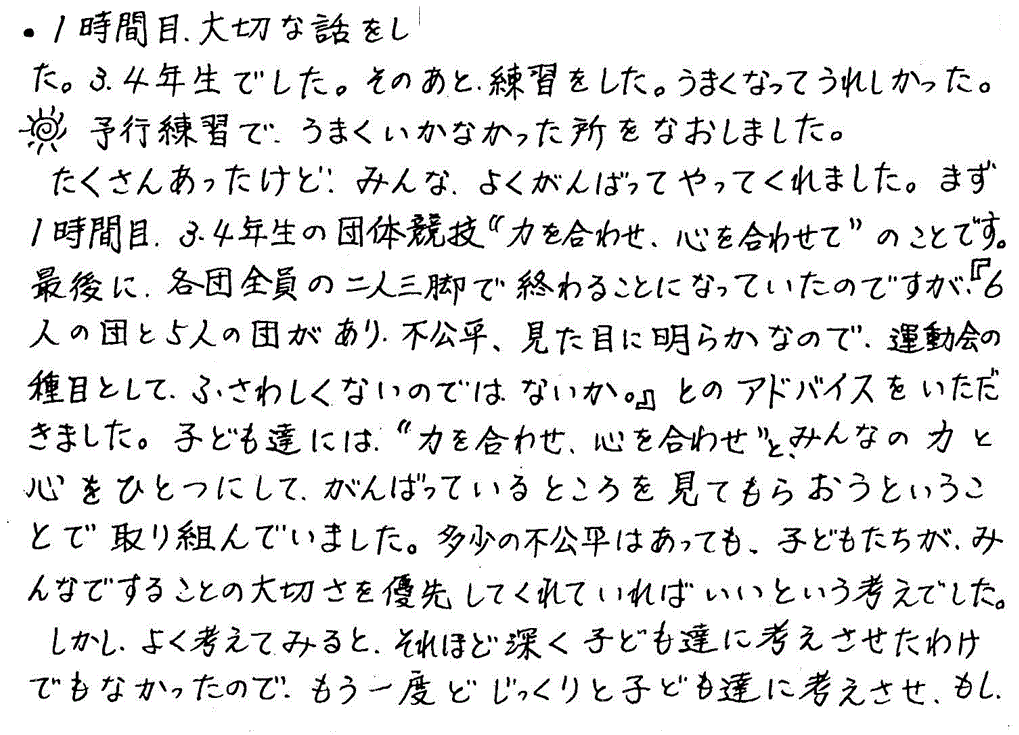 ・1時間目.大切な話をし
た。3.4年生でした。そのあと.練習をした。うまくなってうれしかった。
予行練習で.うまくいかなかった所をなおしました。
たくさんあったけど.みんな.よくがんばってやってくれました。まず
1時間目.3.4年生の団体競技“力を合わせ、心を合わせて”のことです。
最後に.各団全員の二人三脚で終わることになっていたのですが、『6
人の団と5人の団があり.不公平、見た目に明らかなので.運動会の
種目として.ふさわしくないのではないか。』とのアドバイスをいただ
きました。子ども達には.“力を合わせ、心を合わせ”と、みんなの力と
心をひとつにして、がんばっているところを見てもらおうというこ
とで取り組んでいました。多少の不公平はあっても、子どもたちが、み
んなですることの大切さを優先してくれていればいいという考えでした。
しかし.よく考えてみると、それほど深く子ども達に考えさせたわけ
でもなかったので.もう一度どじっくりと子ども達に考えさせ、もし.